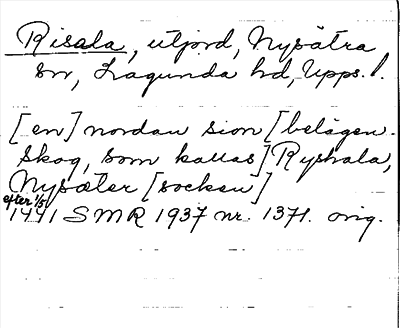 Risala, utjord, Nysätra
sn, Lagunda hd, Upps. l.
[en] nordan sion [belägen.
skog, som kallas] Rysvala,
Nysæter [socken]
efter 1/5
1441 SMR 1937 nr. 1371. orig.